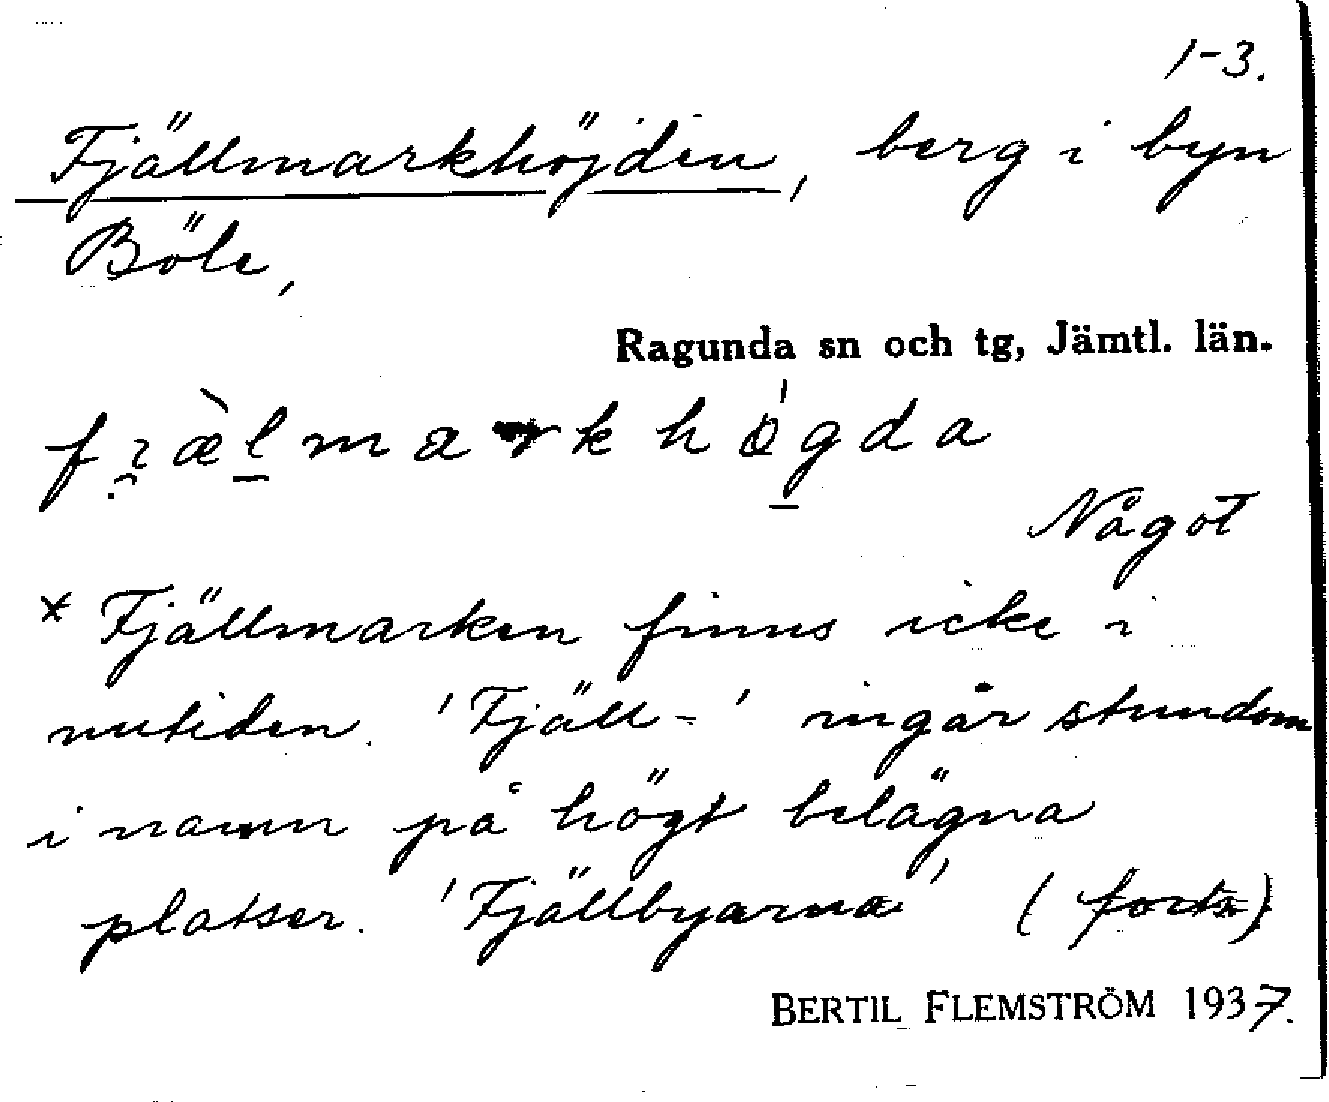 1-3.
Fjällmarkhöjden, berg i byn
Böle,
Ragunda sn och tg, Jämtl. län.
fi̯æ̀l̠markhǿgda
Något
* Fjällmarken finns icke i
nutiden. 'Fjäll-' ingår stundom
i namn på högt belägna
platser. 'Fjällbyarna' (forts)
BERTIL FLEMSTRÖM 1937.